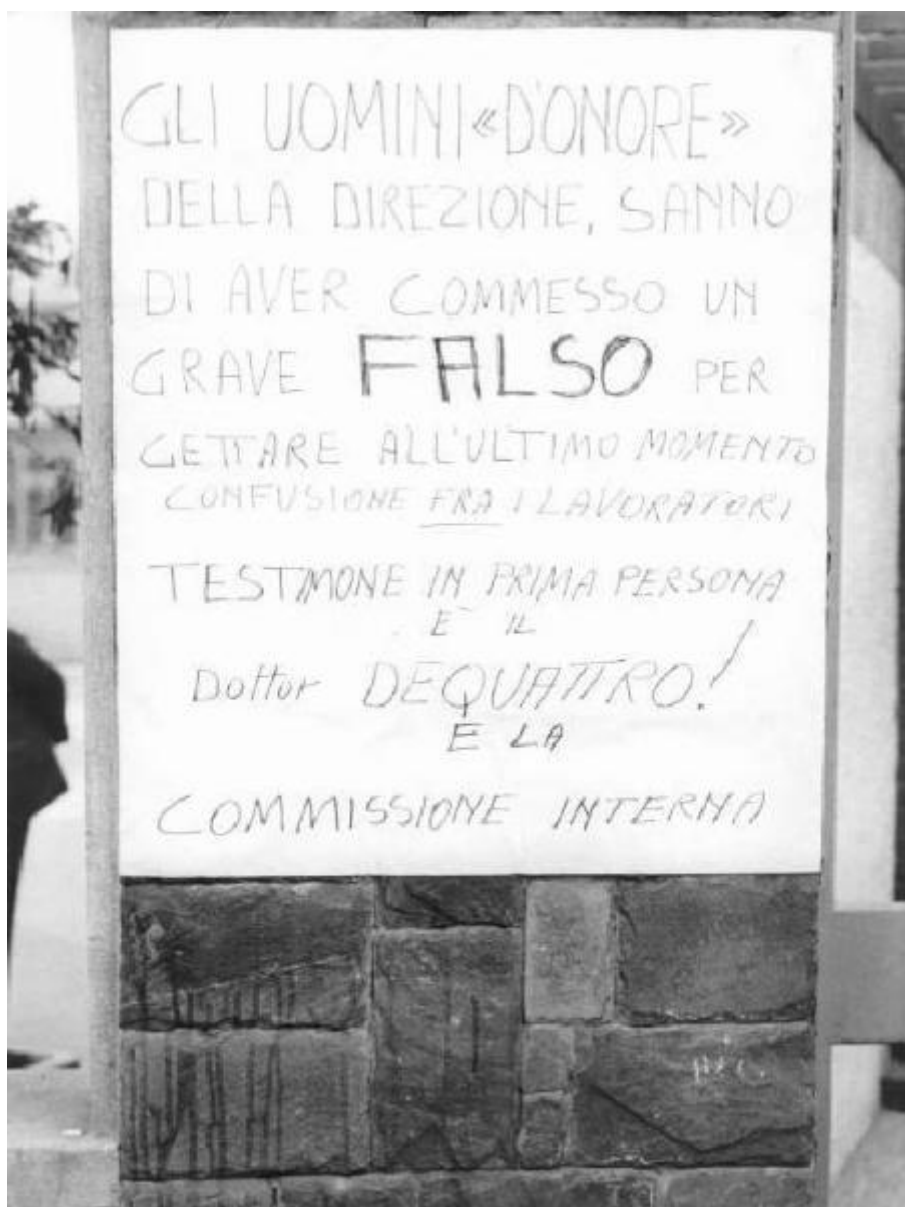 GLI UOMINI «D'ONORE»
DELLA DIREZIONE, SANNO
DI AVER COMMESSO UN
GRAVE FALSO PER
GETTARE ALL'ULTIMO MOMENTO
CONFUSIONE FRA I LAVORATORI
TESTIMONE IN PRIMA PERSONA
E IL
Dottor DEQUATTRO!
E LA
COMMISSIONE INTERNA